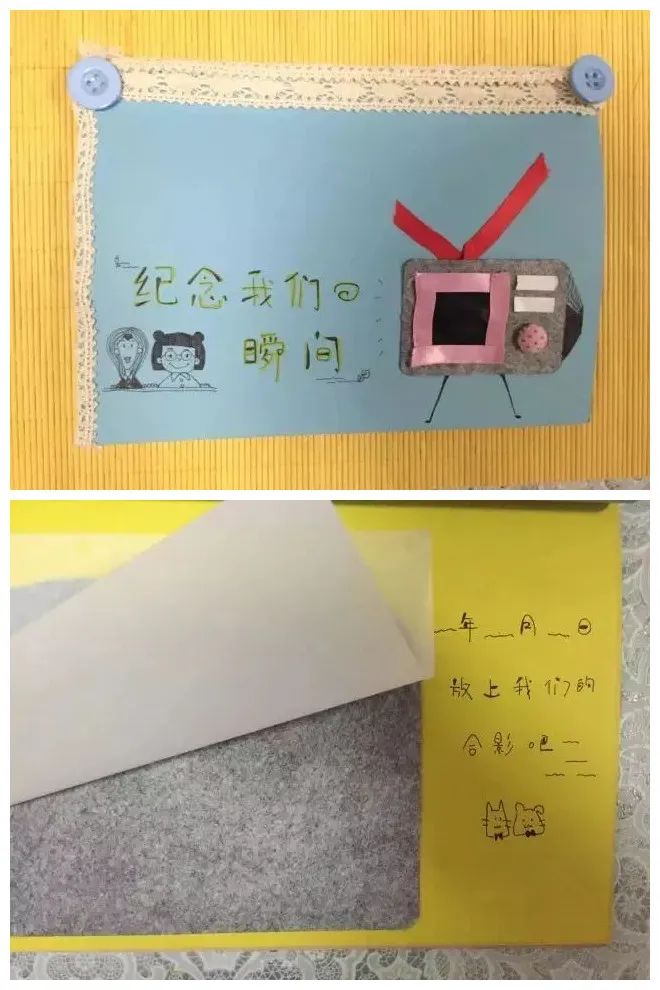 纪念我们の
瞬间
年 月 日
放上我们的
合影吧